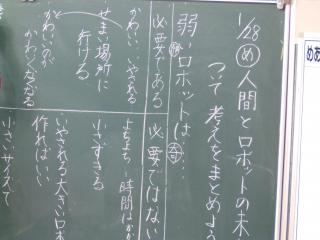 1/28 め 人間とロボットの未
ついて考えをまとめよう
弱いロボットは…
必要である
かわいい、いやされる
せまい場所に
行ける。
かわいいが
かわくなかる
必要ではない
よちよち→時間はかか
小さすぎる
いやされる大きいロボ
作ればいい
小さいサイズで
めあ